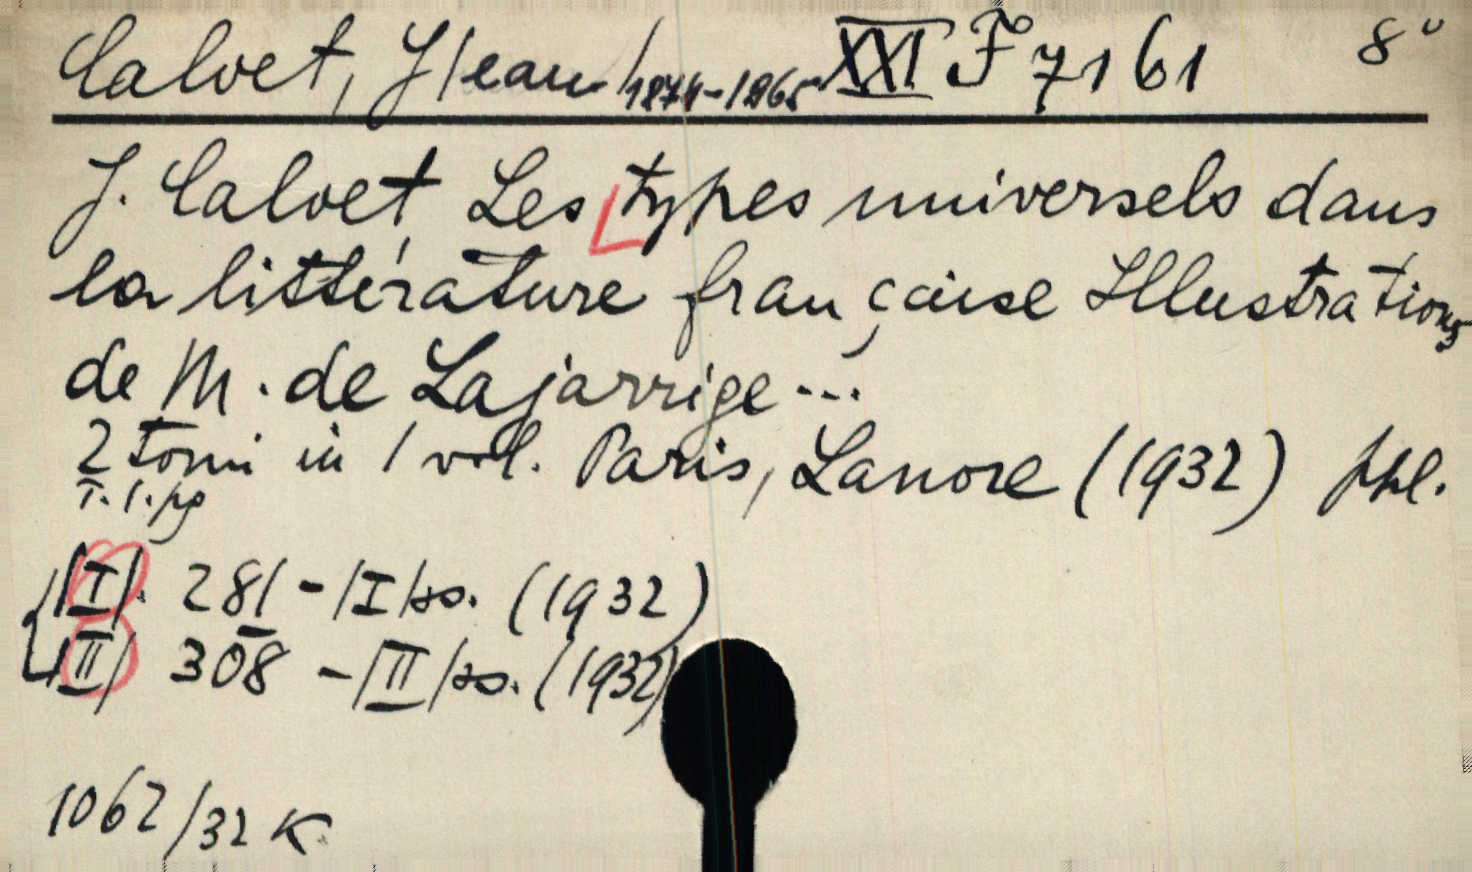 Calvet, J/ean/ 1874-1965 XXI F 7161 8°
J. Calvet Les types universels dans
la littérature française Illustrations
de M. de Lajarrige...
2 tomi in 1 vol. Paris, Lanore (1932) ppl.
T. 1. pg
/I/. 281 - /I/ so. (1932)
/II/ 308 - /II/ so. (1932)
1062/32 K.